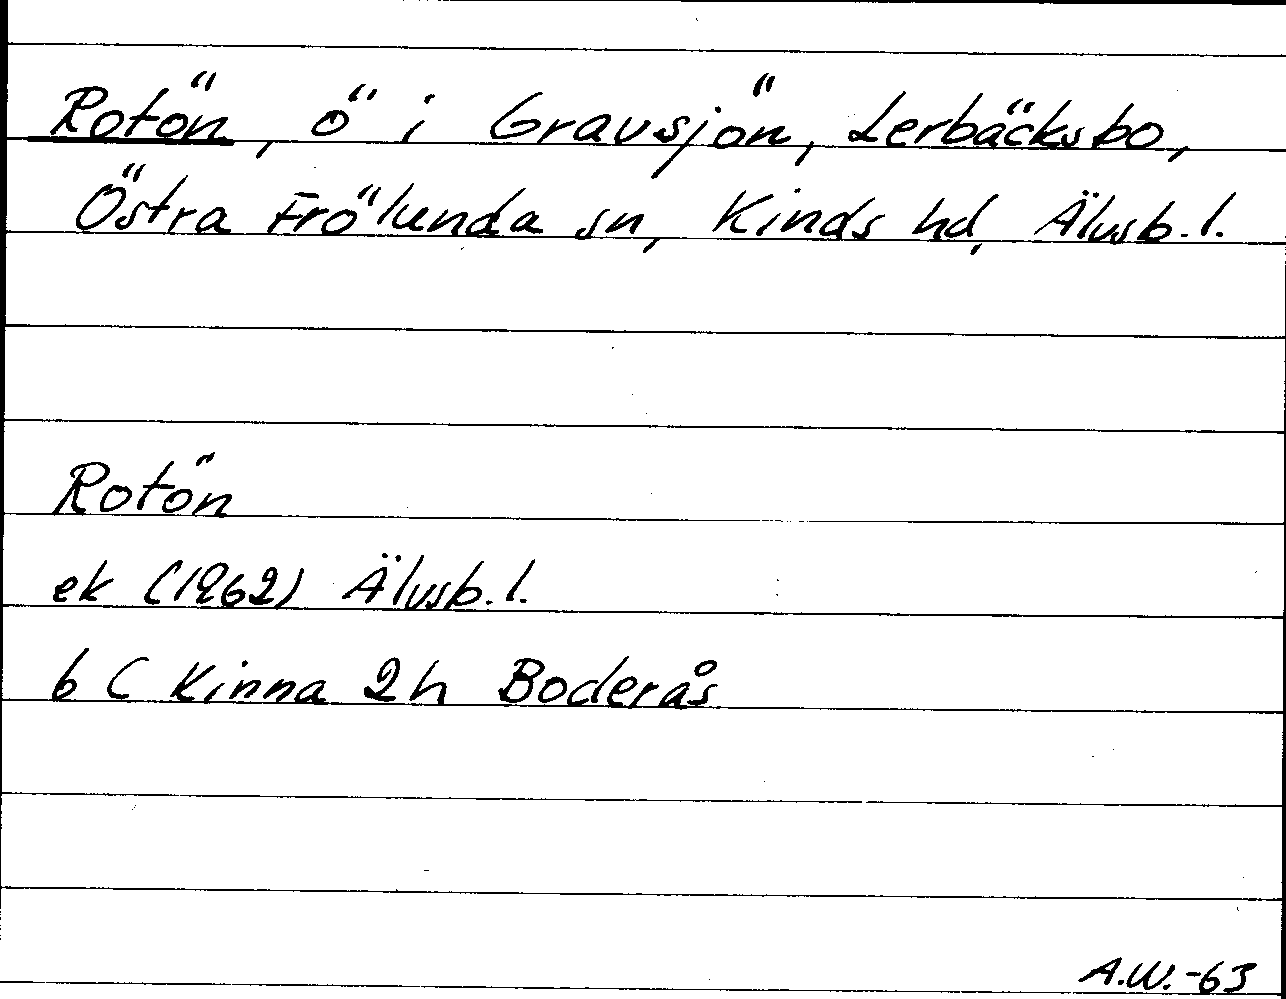 Rotön, ö i Gravsjön, Lerbäcksbo,
Östra Frölunda sn, Kinds hd, Älvsb. l.
Rotön
ek (1962) Älvsb. l.
6 C Kinna 2h Boderås
A.W.-63